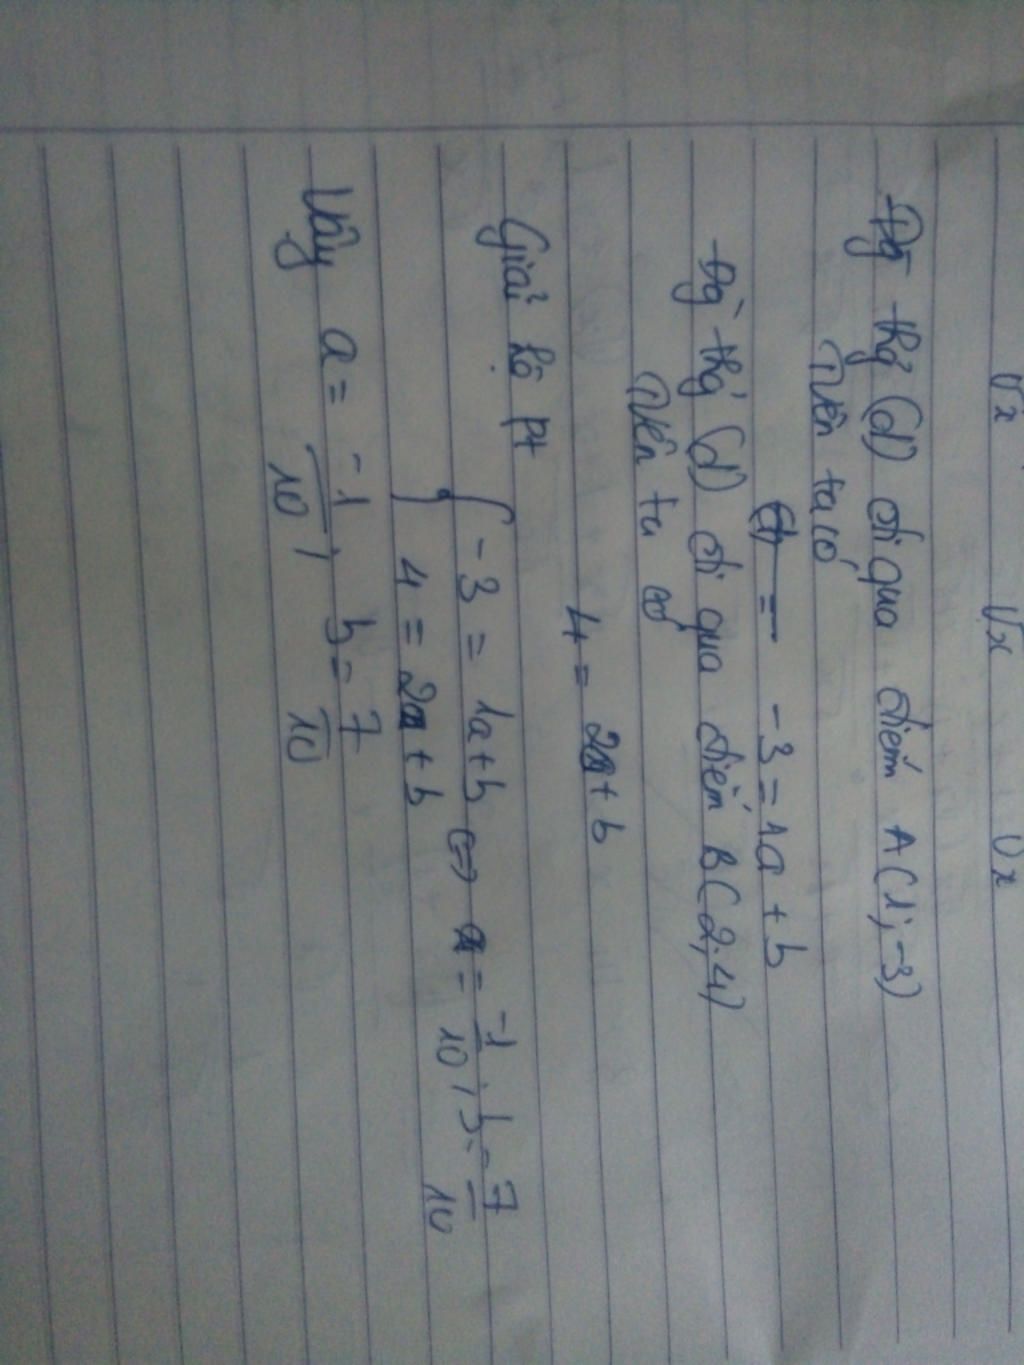 √x √x √x
Đồ thị (d) đi qua điểm A(1;-3)
nên ta có
-3 = 1a + b
Đồ thị (d) đi qua điểm B(2;4)
nên ta có
4 = 2a + b
Giải hệ pt
{ -3 = 1a + b ⇔ a = -1/10 ; b = 7/10
4 = 2a + b
Vậy a = -1/10 , b = 7/10